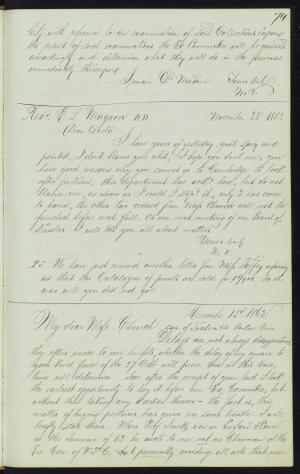 74
only with reference to our examination of said Collections (upon
the result of said examinations the Ex Committee will be governed
accordingly and determine what they will do in the premises
immediately thereupon
I remain Dr Madam Yours truly
M. V.
Revd. E L Magoon DD November 28th 1862
Dear Doctor
I have yours of yesterday, quite spicy and
pointed, I don't blame you still, I hope you don't me, you
have good reasons why you cannot go to Cambridge to look
after pictures; this department has but do not
blame me, as soon as I could I stop'd it, only 2 has come
to hand, the other two ordered from Miss Church will not be
finished before next fall. At our next meeting of our Board of
Trustees I will tell you all about matters
Yours truly
M V
PS We have just received another letter from Miss informing
us that the Catalogue of prints are sold for $900. So it
was well you did not go
December 13th 1862
My dear Miss Church
Delays are not always disappointing
they often prove to our benefit, whether the delay of my answer to
your kind favor of the 27 Octo will prove thus in this case,
time will determine. Soon after the receipt of your last I took
the earliest opportunity to lay it before our Ex Committee, but
without their taking any decided - the fact is, this
matter of buying pictures has given us some trouble. I will
briefly state them. When Prof was in England & Rome
in the Summer of 62 he wrote to me not as Chairman of the
Ex Com of V. F. C. but personally avoiding all acts that